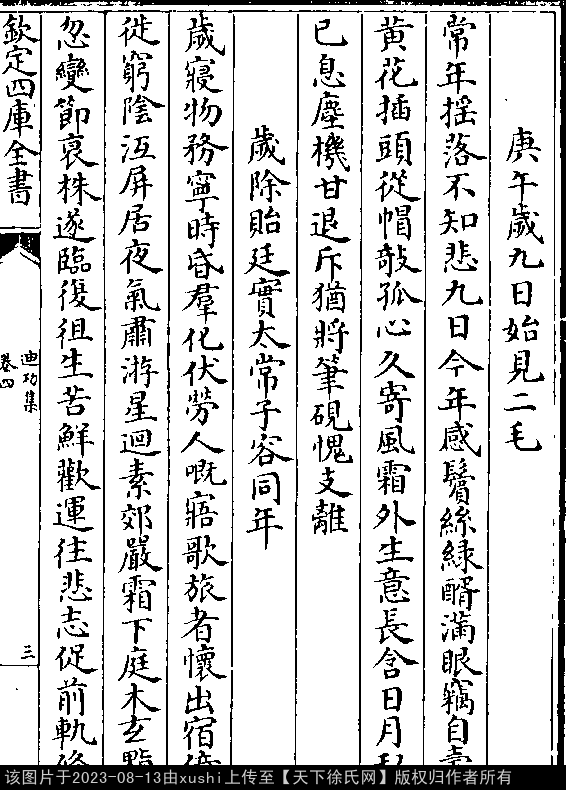 庚午歲九日始見二毛
常年揺落不知悲九日今年感鬢絲緑醑滿眼竊自
黄花插頭從帽敧孤心久寄風霜外生意長含日月
已息塵機甘退斥猶將筆硯愧支離
歲除貽廷實太常子容同年
歲寢物務寧時昏羣化伏勞人嘅寤歌旅者懷出宿
徙窮陰沍屏居夜氣肅游星迴素郊嚴霜下庭木玄
忽變節衰株遂臨復徂生苦鮮歡運往悲志促前軌
欽定四庫全書
迪功集
卷四
三
该图片于2023-08-13由xushi上传至【天下徐氏网】版权归作者所有